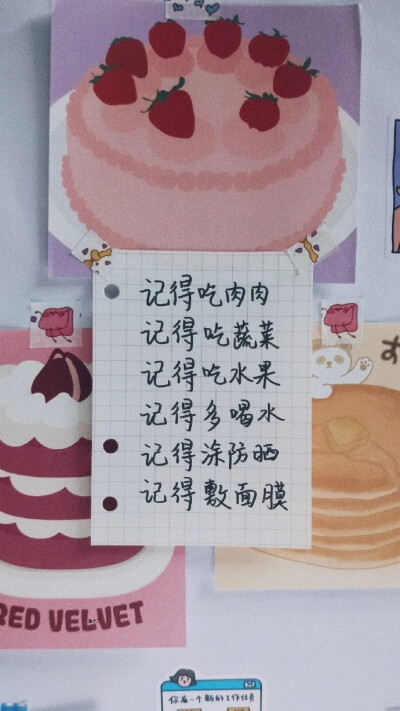 记得吃肉肉
记得吃蔬菜
记得吃水果
记得多喝水
记得涂防晒
记得敷面膜
RED VELVET
你有一个新的工作任务